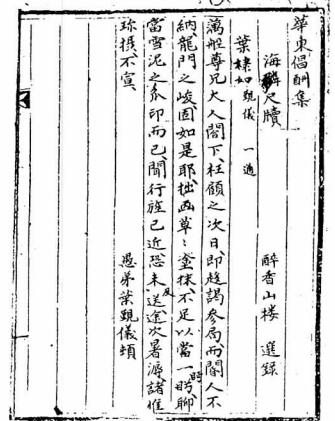 華東倡酬集
海鄰尺牘 醉香山楼 選録
葉棣如覲儀 一通
萬船尊兄大人閣下、枉顧之次日、即趍謁叅局、而閽人不
納、龍門之峻、固如是耶、拙画草〻塗抺、不足以當一盻、聊
當雪泥之爪印而已、聞行旌已近、恐未及送、途次暑溽、諸惟
珎摂、不宣、
愚弟葉覲儀頓